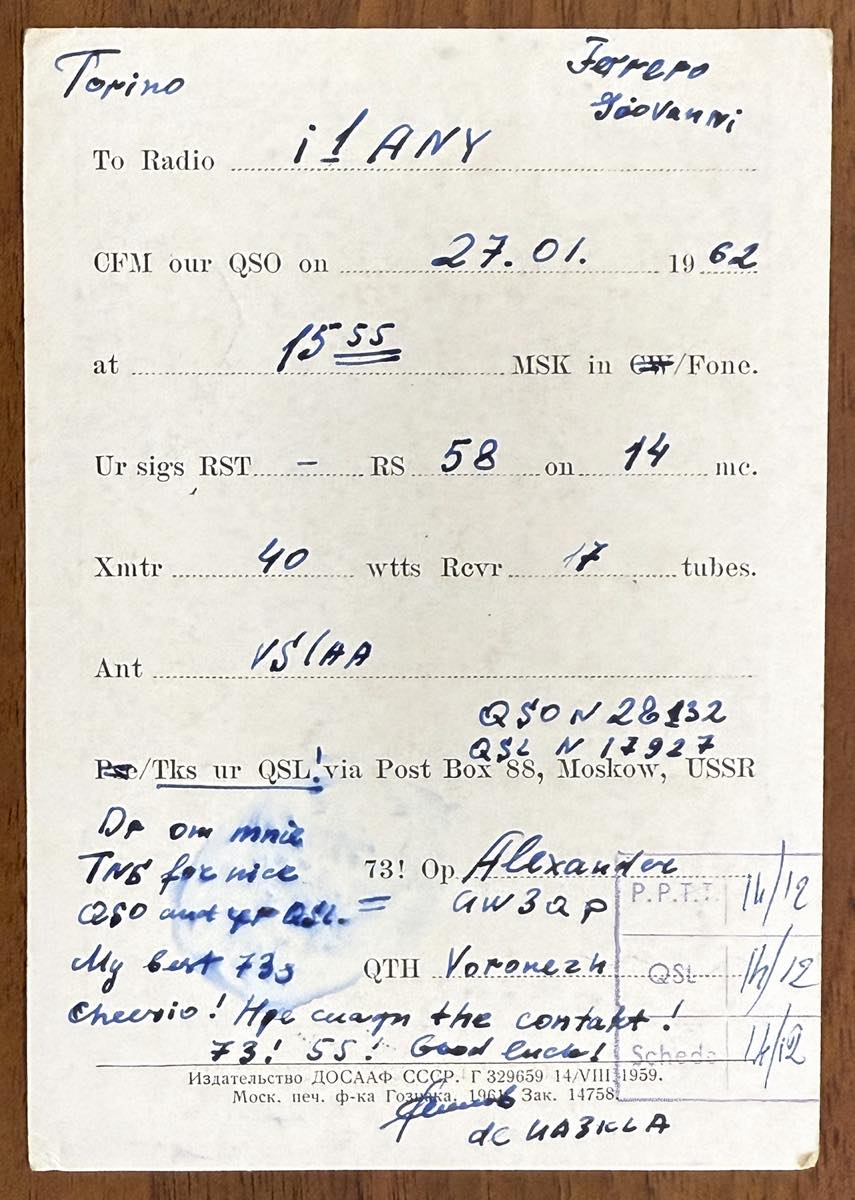 Torino
Ferrero
Giovanni
To Radio i1ANY
CFM our QSO on 27.01. 1962
at 15 55 MSK in CW/Fone.
Ur sigs RST – RS 58 on 14 mc.
Xmtr 40 wtts Rcvr 17 tubes.
Ant VS1AA
QSO N 28132
QSL N 17927
Pse/Tks ur QSL! via Post Box 88, Moskow, USSR
Dr om
TNS for nice
QSO and QSL. =
My best 73s
73! Op Alexander
QTH Voronezh
cheerio! the contakt!
73! 55! Good luck!
P.P.T.T. 14/12
QSL 14/12
Schede 14/12
Издательство ДОСААФ СССР. Г 329659 14/VIII 1959.
Моск. печ. ф-ка Гознака. 1961. Зак. 14758.
de UA3KLA